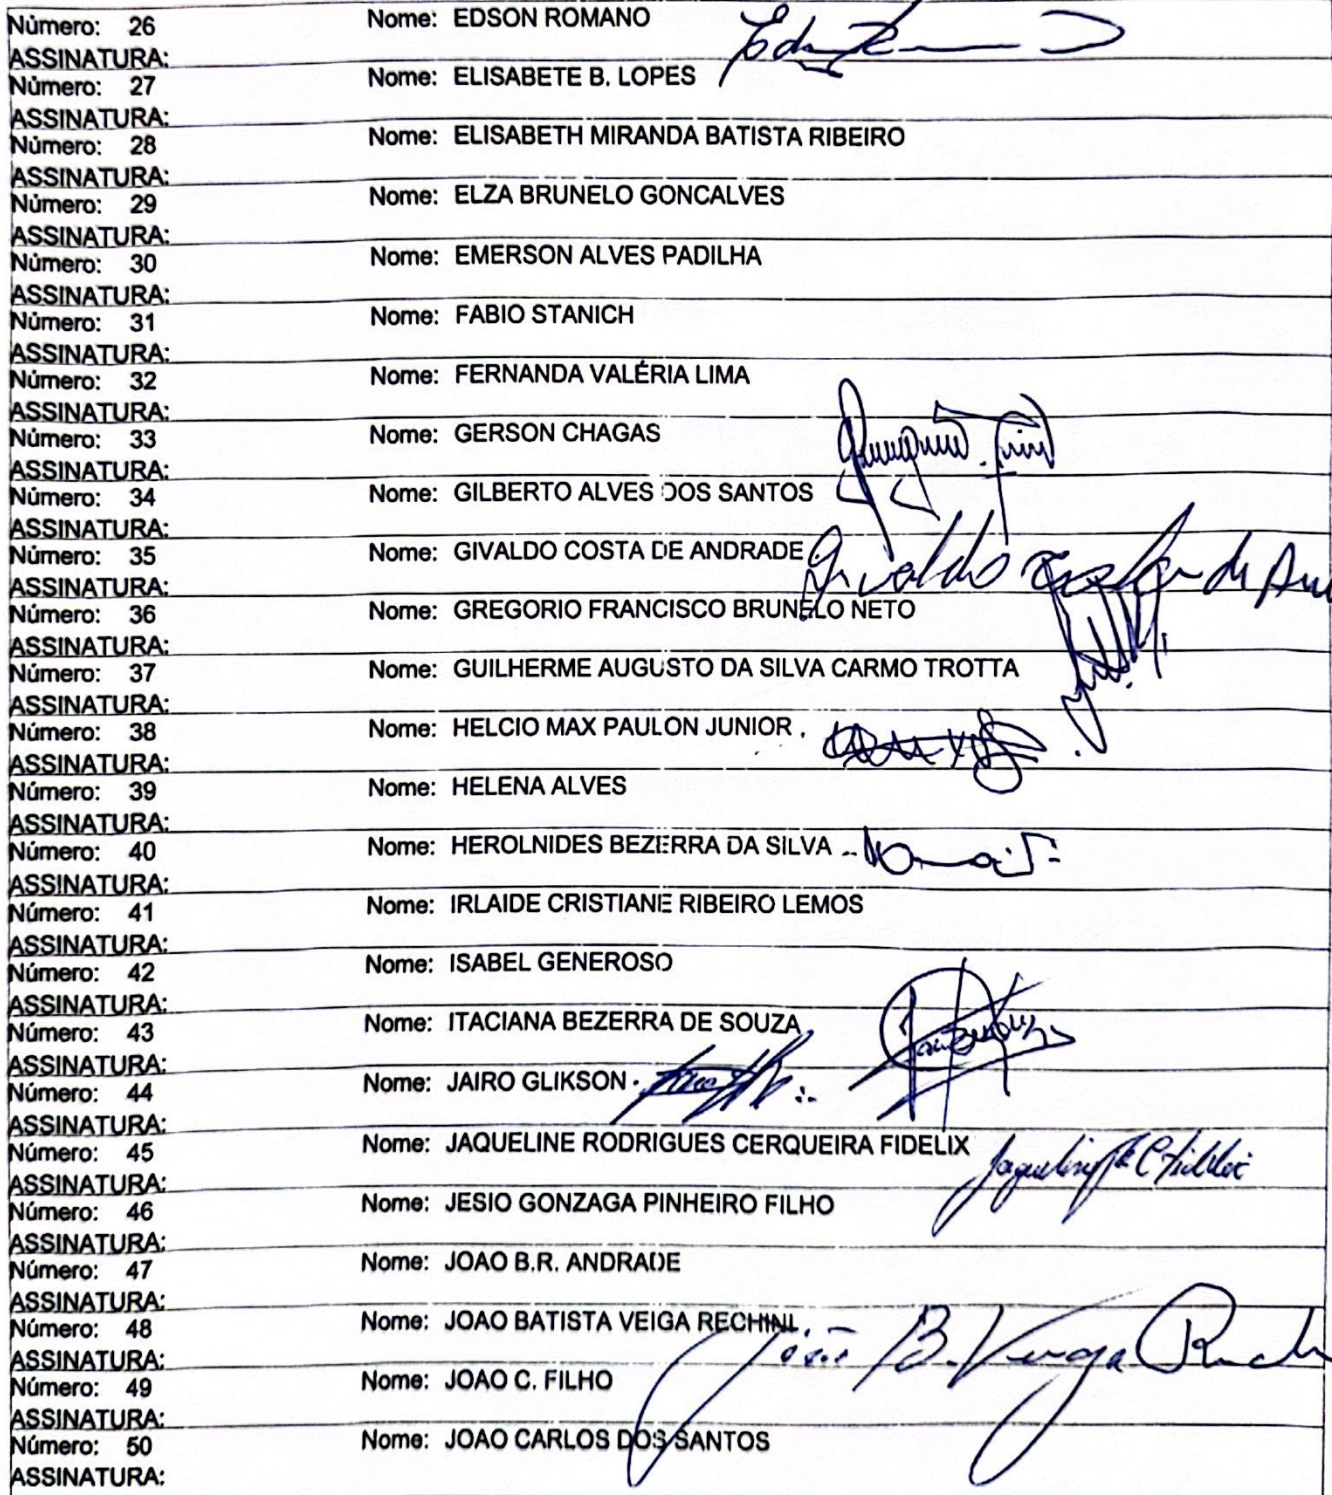 Número: 26 Nome: EDSON ROMANO
ASSINATURA:
Número: 27 Nome: ELISABETE B. LOPES
ASSINATURA:
Número: 28 Nome: ELISABETH MIRANDA BATISTA RIBEIRO
ASSINATURA:
Número: 29 Nome: ELZA BRUNELO GONCALVES
ASSINATURA:
Número: 30 Nome: EMERSON ALVES PADILHA
ASSINATURA:
Número: 31 Nome: FABIO STANICH
ASSINATURA:
Número: 32 Nome: FERNANDA VALÉRIA LIMA
ASSINATURA:
Número: 33 Nome: GERSON CHAGAS
ASSINATURA:
Número: 34 Nome: GILBERTO ALVES DOS SANTOS
ASSINATURA:
Número: 35 Nome: GIVALDO COSTA DE ANDRADE Givaldo Costa de
ASSINATURA:
Número: 36 Nome: GREGORIO FRANCISCO BRUNELO NETO
ASSINATURA:
Número: 37 Nome: GUILHERME AUGUSTO DA SILVA CARMO TROTTA
ASSINATURA:
Número: 38 Nome: HELCIO MAX PAULON JUNIOR
ASSINATURA:
Número: 39 Nome: HELENA ALVES
ASSINATURA:
Número: 40 Nome: HEROLNIDES BEZERRA DA SILVA
ASSINATURA:
Número: 41 Nome: IRLAIDE CRISTIANE RIBEIRO LEMOS
ASSINATURA:
Número: 42 Nome: ISABEL GENEROSO
ASSINATURA:
Número: 43 Nome: ITACIANA BEZERRA DE SOUZA
ASSINATURA:
Número: 44 Nome: JAIRO GLIKSON
ASSINATURA:
Número: 45 Nome: JAQUELINE RODRIGUES CERQUEIRA FIDELIX Jaqueline R C Fidelix
ASSINATURA:
Número: 46 Nome: JESIO GONZAGA PINHEIRO FILHO
ASSINATURA:
Número: 47 Nome: JOAO B.R. ANDRADE
ASSINATURA:
Número: 48 Nome: JOAO BATISTA VEIGA RECHINI João B. Veiga
ASSINATURA:
Número: 49 Nome: JOAO C. FILHO
ASSINATURA:
Número: 50 Nome: JOAO CARLOS DOS SANTOS
ASSINATURA: